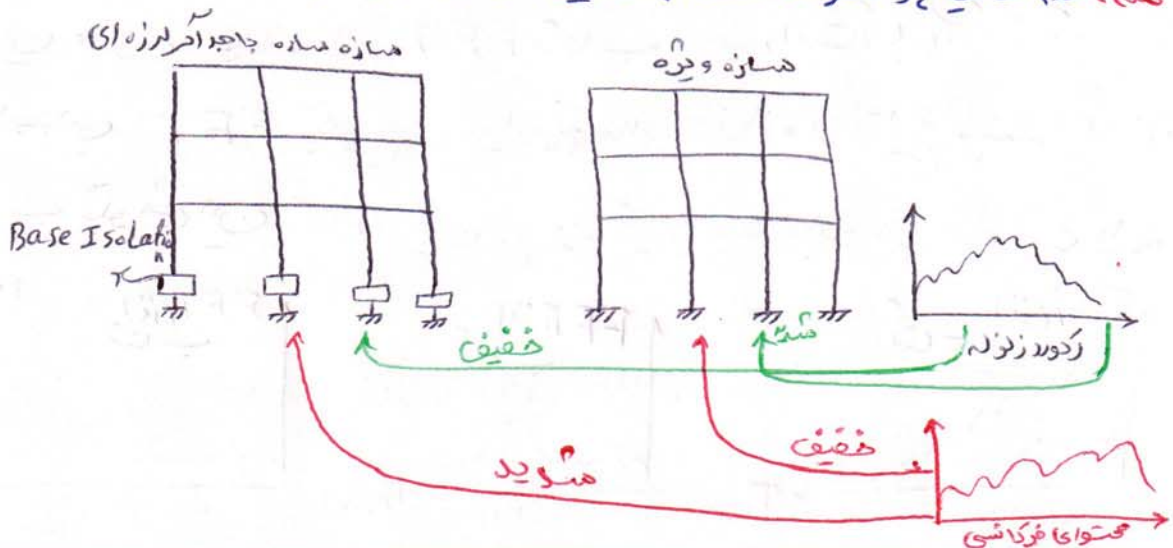 سازه ساده با جداگر لرزه ای
سازه ویژه
Base Isolation
خفیف
شدید
رکورد زلزله
خفیف
شدید
محتوای فرکانسی